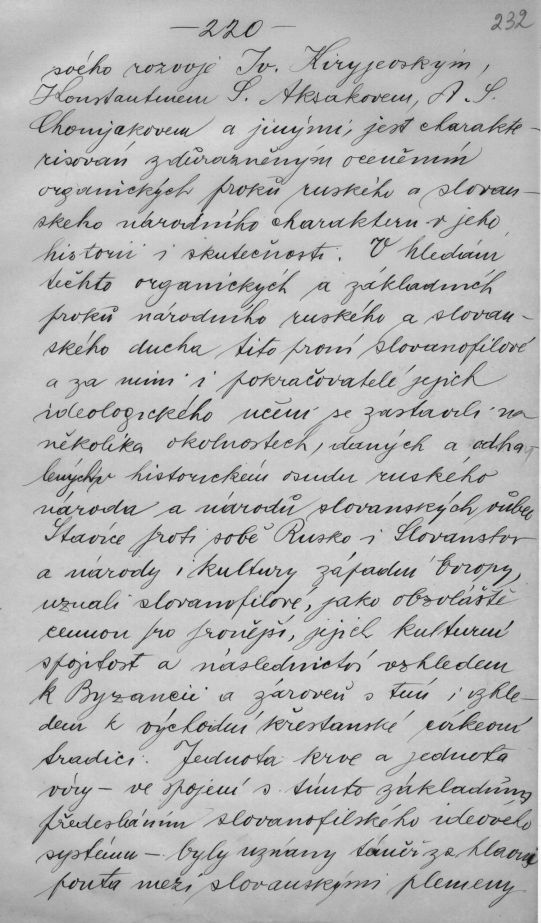 — 220 —
232
svého rozvoje Iv. Kiryjevským,
Konstantinem S. Aksakovem, A. S.
Chomjakovem a jinými, jest charakte-
risován zdůrazněným oceněním
organických prvků ruského a slovan-
ského národního charakteru v jeho
historii i skutečnosti. V hledání
těchto organických a základních
prvků národního ruského a slovan-
ského ducha tito první slovanofilové
a za nimi i pokračovatelé jejich
ideologického učení se zastavili na
několika okolnostech, daných a odha-
lených v historickém osudu ruského
národa a národů slovanských vůbec
Stavíce proti sobě Rusko i Slovanstvo
a národy i kultury západní Evropy,
uznali slovanofilové, jako obzvláště
cennou pro prvnější, jejich kulturní
spojitost a následnictví vzhledem
k Byzancii a zároveň s tím i vzhle-
dem k východní křesťanské církevní
tradici. Jednota krve a jednota
víry — ve spojení s tímto základním
předesláním slovanofilského ideového
systému — byly uznány téměř za hlavní
pouta mezi slovanskými plemeny